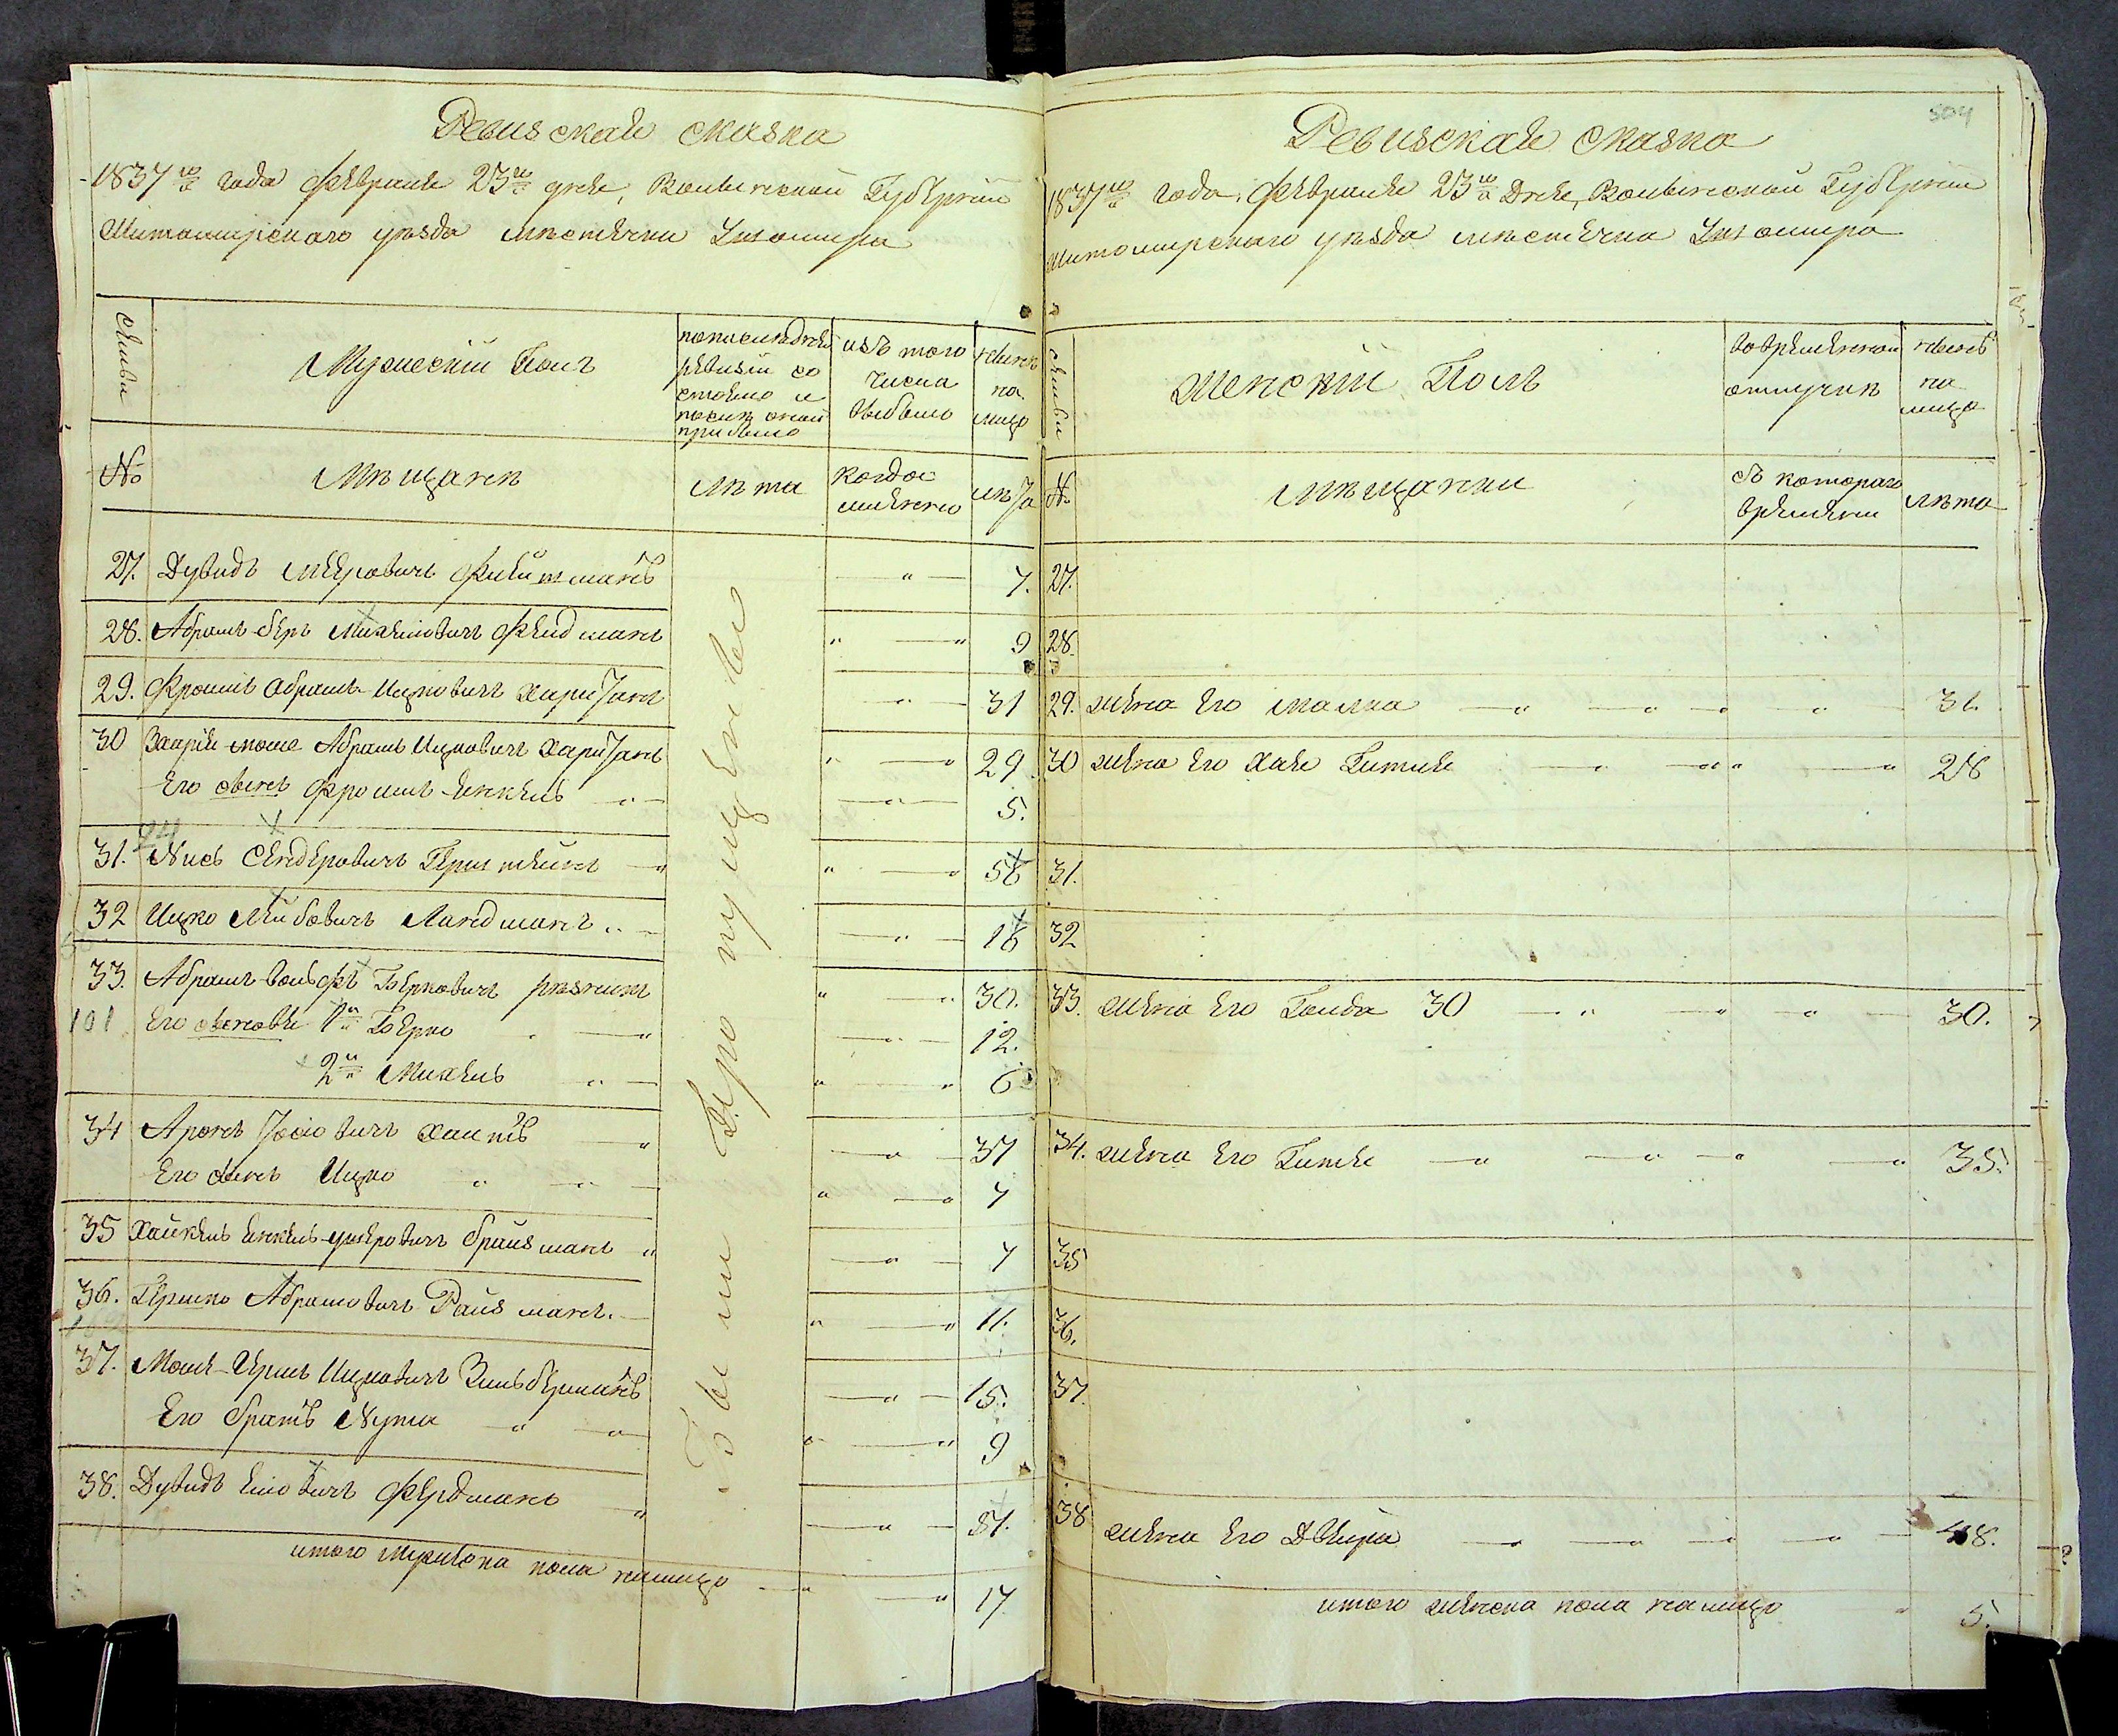 Ревизская сказка
1837го года Февраля 23го дня, Волынской Губернии
Житомирского уезда местечка Ушомира
Семьи
Мужеский Пол
по последней ревизии состояло и после оной прибыло
изъ того числа выбыло
ныне на лицо
№
Мещане
лета
когда именно
лета
Были пропущенные
27. Дувидъ Меерович Фи 7.
28. Абрамъ-Беръ Михелевичъ Фельдманъ 9
29. Фроимъ Абрамъ-Ицковичъ Хаританъ 31
30 Мошe Абрамъ Ицковичъ Хаританъ 29
Его сынъ Фроимъ-Янкель 5.
94
31. Нисъ Сендеровичъ Герштейнъ 56
32 Ицко Лейбовичъ Ландманъ 16
33. Абрамъ-Вольфъ Берковичъ Резникъ 30.
101 Его сыновья 1й Берко 12.
2й Михель 6
34 Аронъ Иосiовичъ Хаитъ 37
Его сынъ Ицко 7
35 Хайкель Янкель Брайзманъ 7
36. Гершко Абрамовичъ Райзманъ 11.
37. Мошко Ицковичъ Зильберманъ 15.
Его братъ Нута 9
38. Дувидъ Елiовичъ Фердманъ 51.
итого мужеска пола налицо 17
504
Ревизская Сказка
1837го года, Февраля 23го Дня, Волынской Губернии
Житомирского уезда местечка Ушомира
Семьи
Женский Пол
во временной отлучке
ныне на лицо
№
Мещанки
съ которого времени
лета
27.
28.
29. жена его Малка 31.
30 жена его Хая Гитля 28
31.
32
33. жена его Голда 30 30.
34. жена его Гитля 35.
35
36.
37.
38 жена его Двейра 48.
итого женска пола налицо 5.